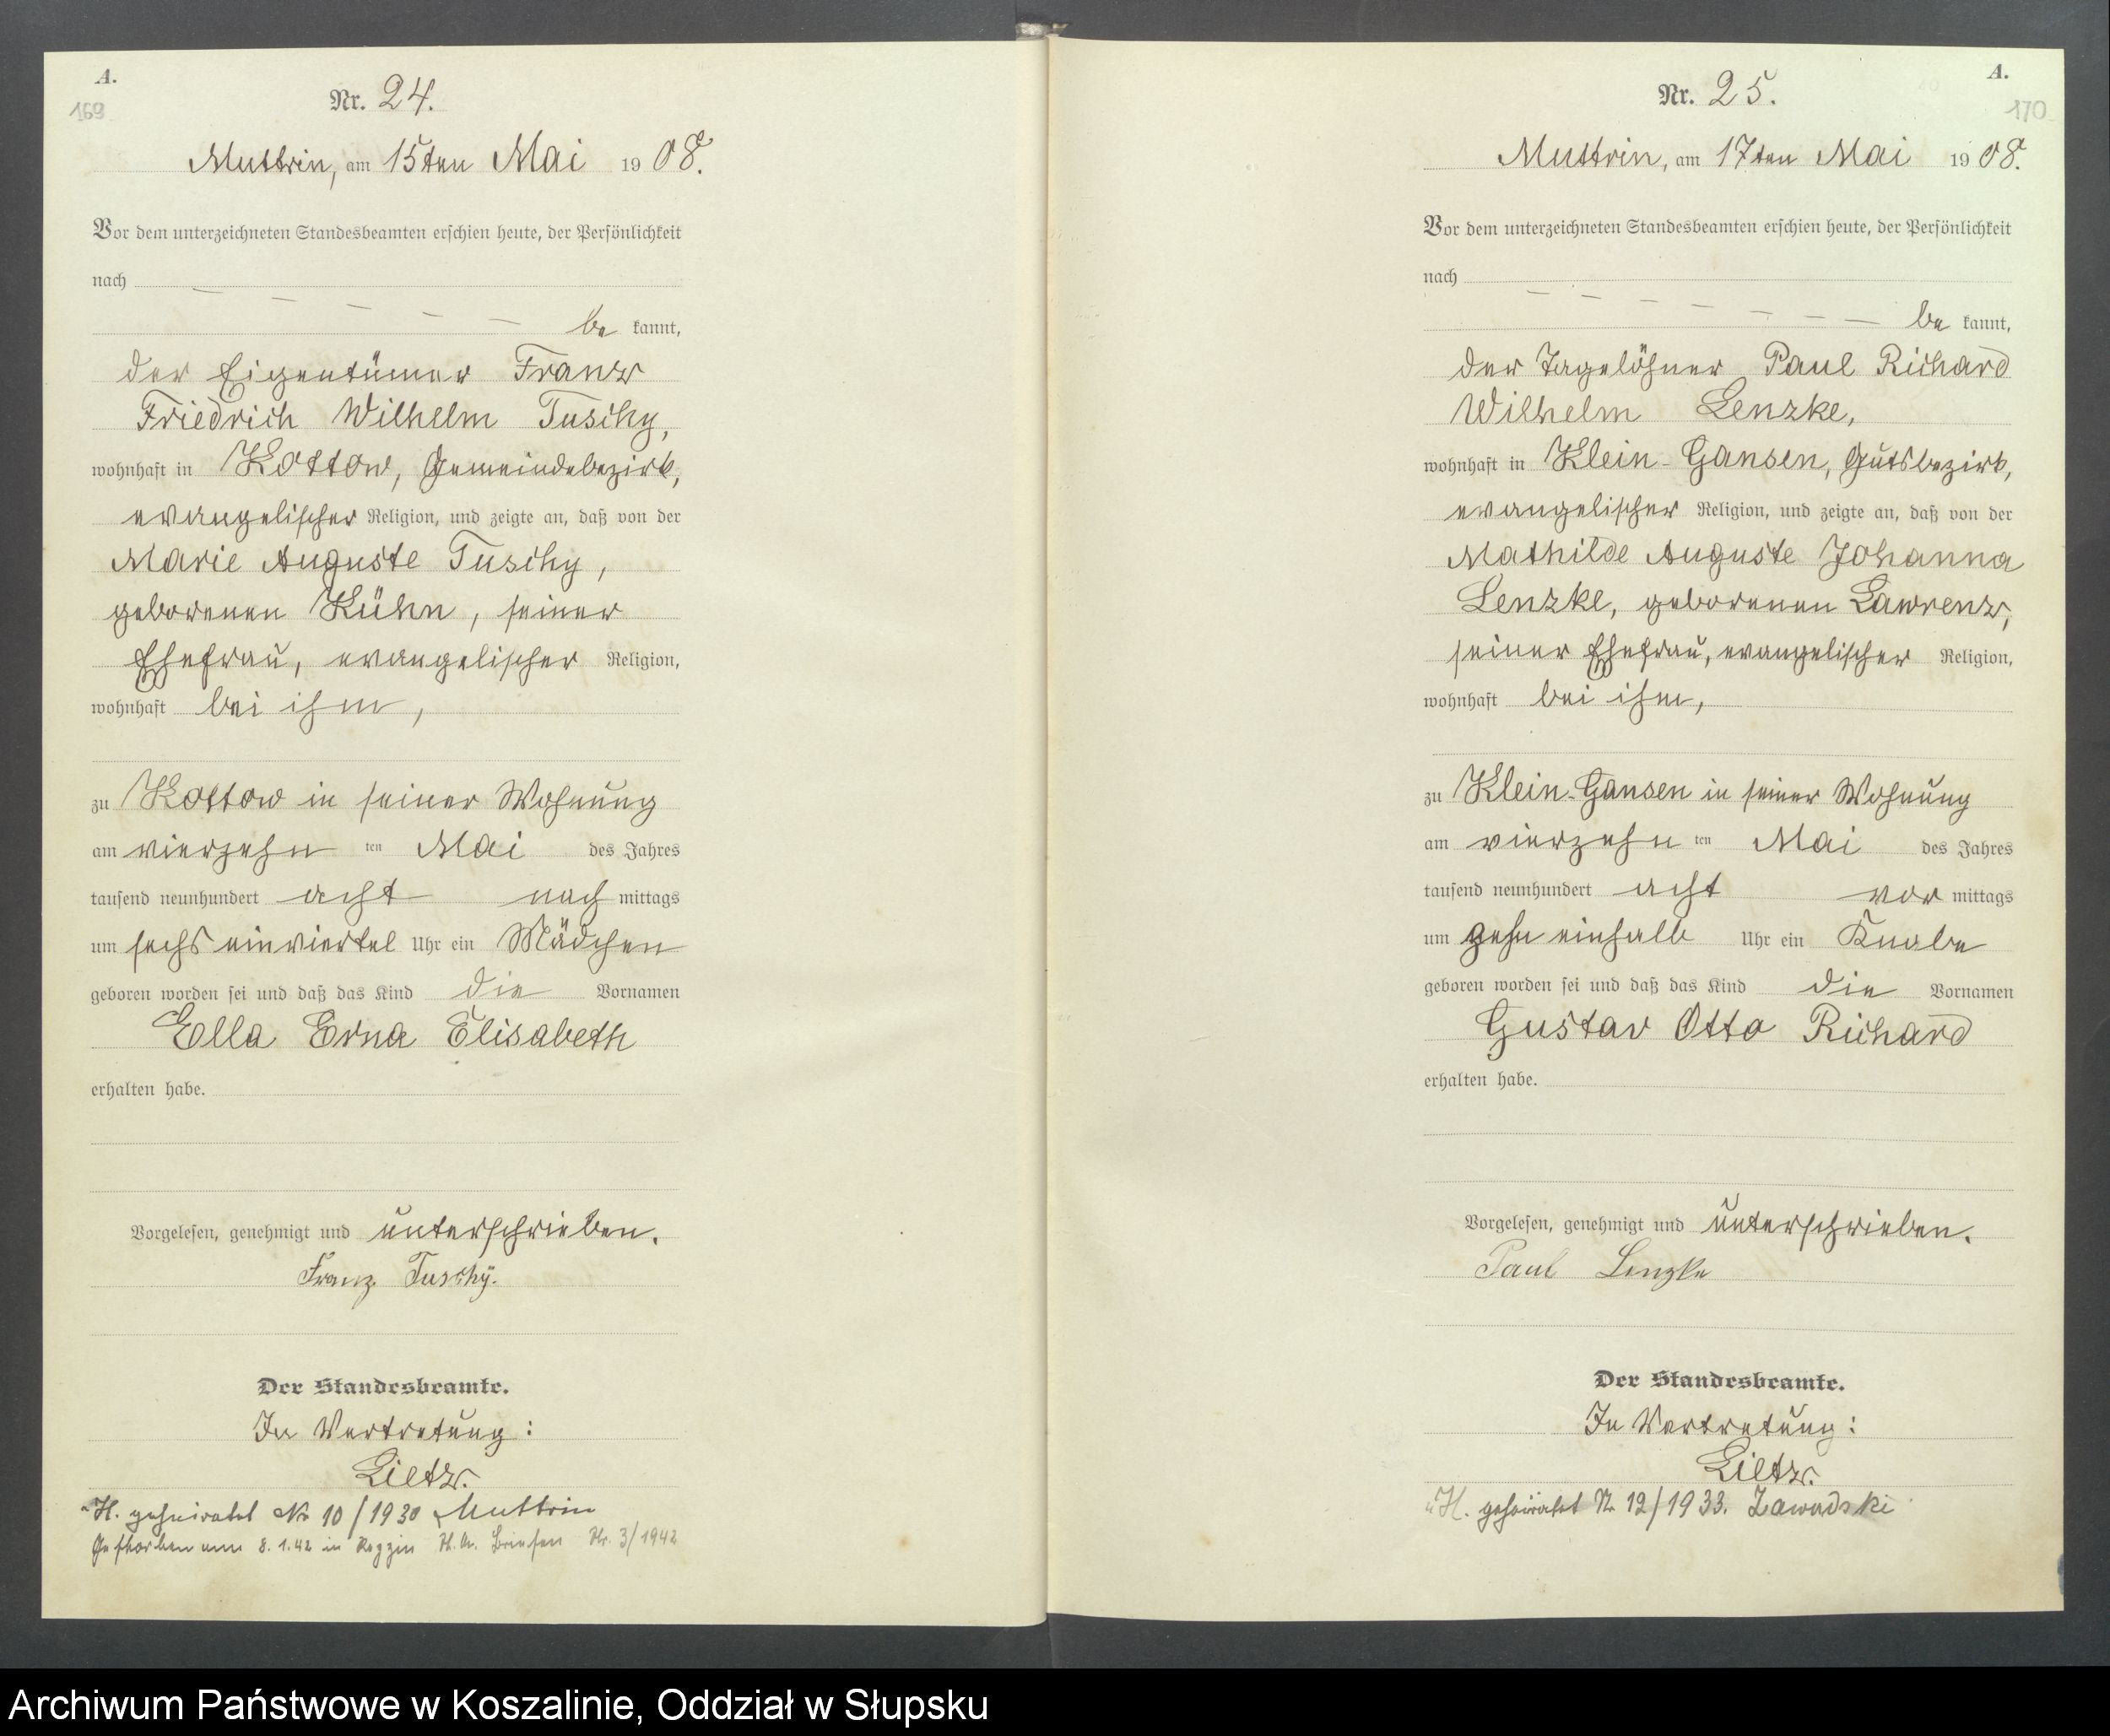 A.
169
Nr. 24.
Muttrin, am 15ten Mai 1908.
Vor dem unterzeichneten Standesbeamten erschien heute, der Persönlichkeit
nach
be kannt,
der Eigentümer Franz
Friedrich Wilhelm Tuschy,
wohnhaft in Kottow, Gemeindebezirk,
evangelischer Religion, und zeigte an, daß von der
Marie Auguste Tuschy,
geborenen Kühn, seiner
Ehefrau, evangelischer Religion,
wohnhaft bei ihm,
zu Kottow in seiner Wohnung
am vierzehn ten Mai des Jahres
tausend neunhundert acht nach mittags
um sechs einviertel Uhr ein Mädchen
geboren worden sei und daß das Kind die Vornamen
Ella Erna Elisabeth
erhalten habe.
Vorgelesen, genehmigt und unterschrieben.
Franz Tuschÿ.
Der Standesbeamte.
In Vertretung:
Lietz.
H. geheiratet Nr 10/1930 Muttrin
Gestorben am 8.1.42 in Nr. 3/1942
A.
170
Nr. 25.
Muttrin, am 17ten Mai 1908.
Vor dem unterzeichneten Standesbeamten erschien heute, der Persönlichkeit
nach
be kannt,
der Tagelöhner Paul Richard
Wilhelm Lenzke,
wohnhaft in Klein-Gansen, Gutsbezirk,
evangelischer Religion, und zeigte an, daß von der
Mathilde Auguste Johanna
Lenzke, geborenen Lawrenz,
seiner Ehefrau, evangelischer Religion,
wohnhaft bei ihm,
zu Klein-Gansen in seiner Wohnung
am vierzehn ten Mai des Jahres
tausend neunhundert acht vor mittags
um zehn einhalb Uhr ein Knabe
geboren worden sei und daß das Kind die Vornamen
Gustav Otto Richard
erhalten habe.
Vorgelesen, genehmigt und unterschrieben.
Paul Lenzke
Der Standesbeamte.
In Vertretung:
Lietz.
H. geheiratet Nr 12/1933. Zawadski
Archiwum Państwowe w Koszalinie, Oddział w Słupsku